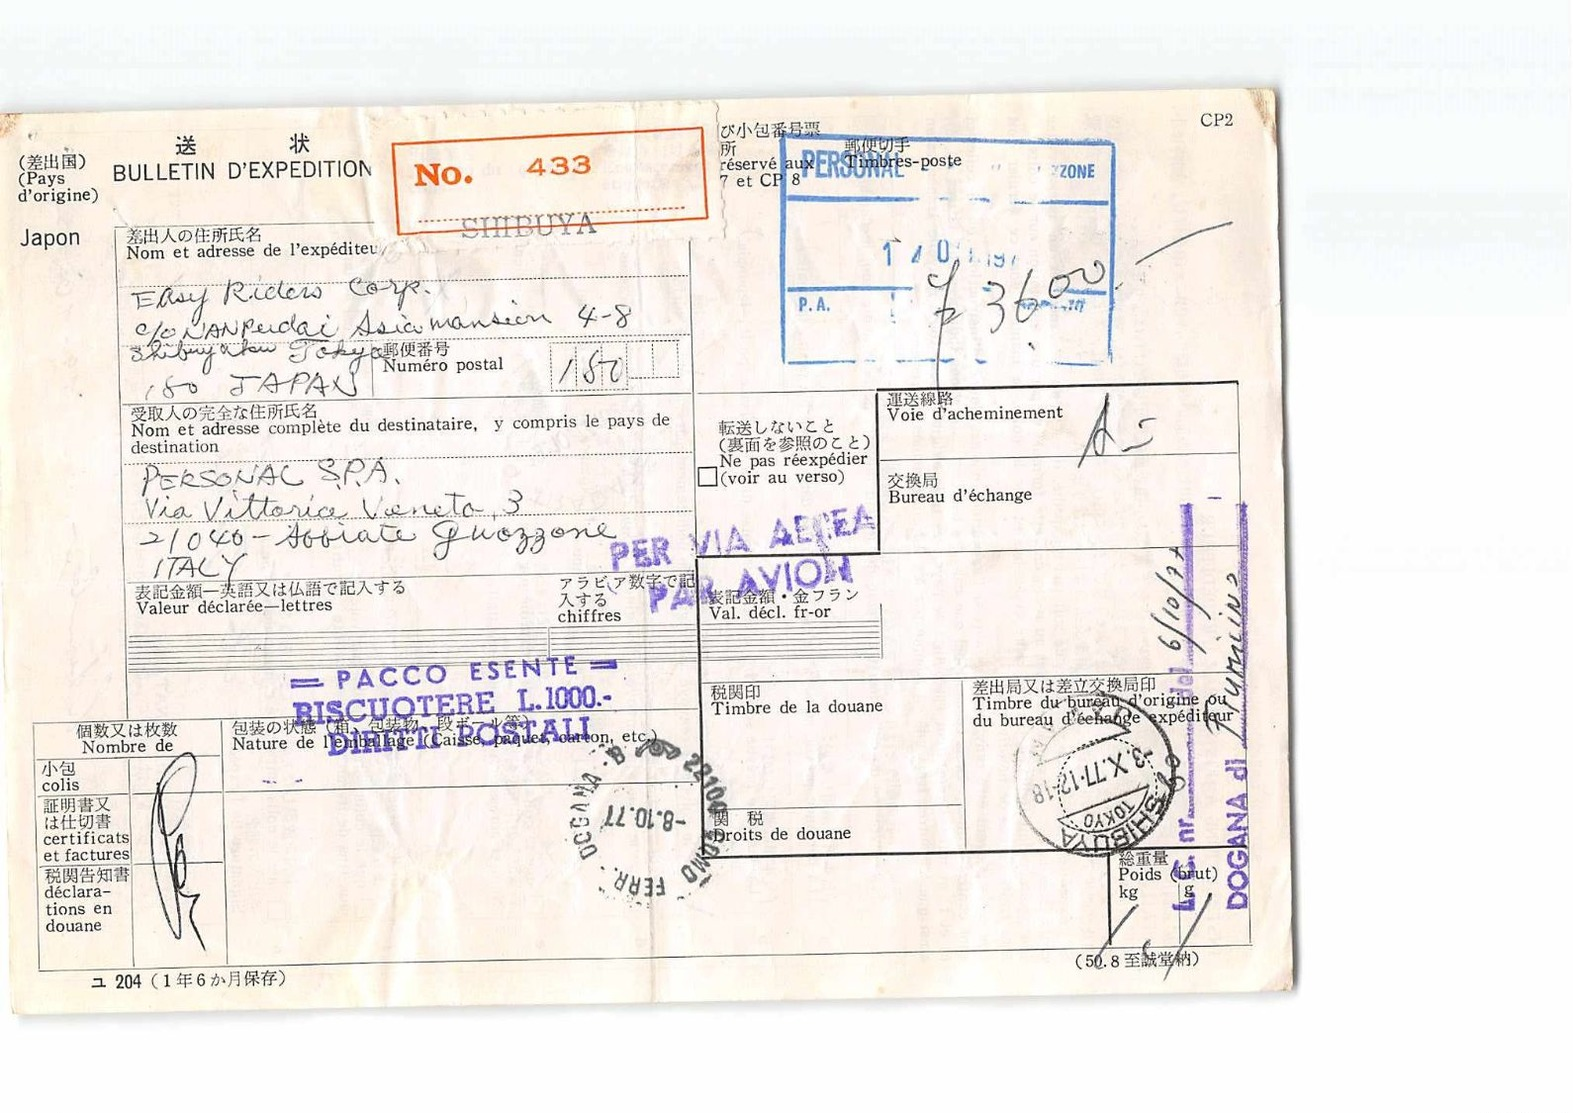 CP2
(差出国)
(Pays
d'origine)
Japon
送 状
BULLETIN D'EXPEDITION
No. 433
SHIBUYA
び小包番号票
所
réservé aux
7 et CP 8
郵便切手
Timbres-poste
PERSONAL
ZZONE
P.A.
3600
差出人の住所氏名
Nom et adresse de l'expéditeu
Easy Riders Corp.
c/o NANPeidai Asia mansion 4-8
Shibuyaku Tokyo
180 JAPAN
郵便番号
Numéro postal
180
受取人の完全な住所氏名
Nom et adresse complète du destinataire, y compris le pays de
destination
PERSONAL S.P.A.
Via Vittoria Veneto, 3
21040 - Abbiate Guazzone
ITALY
転送しないこと
(裏面を参照のこと)
Ne pas réexpédier
(voir au verso)
運送線路
Voie d'acheminement
交換局
Bureau d'échange
PER VIA AEREA
PAR AVION
表記金額—英語又は仏語で記入する
Valeur déclarée—lettres
アラビア数字で記
入する
chiffres
表記金額・金フラン
Val. décl. fr-or
= PACCO ESENTE =
RISCUOTERE L.1000.-
DIRITTI POSTALI
個数又は枚数
Nombre de
包装の状態(箱、包装物、段ボール等)
Nature de l'emballage (Caisse, paquet, carton, etc.)
小包
colis
証明書又
は仕切書
certificats
et factures
税関告知書
déclara-
tions en
douane
税関印
Timbre de la douane
関 税
Droits de douane
差出局又は差立交換局印
Timbre du bureau d'origine ou
du bureau d'échange expéditeur
SHIBUYA
TOKYO
3.X.77.12-18
22100 COMO FERR. DOGANA · B
-8.10.77
L.C. nr. del 6/10/77
DOGANA di Fiumicino
総重量
Poids (brut)
kg g
ユ 204 (1年6か月保存)
(50.8 至誠堂納)